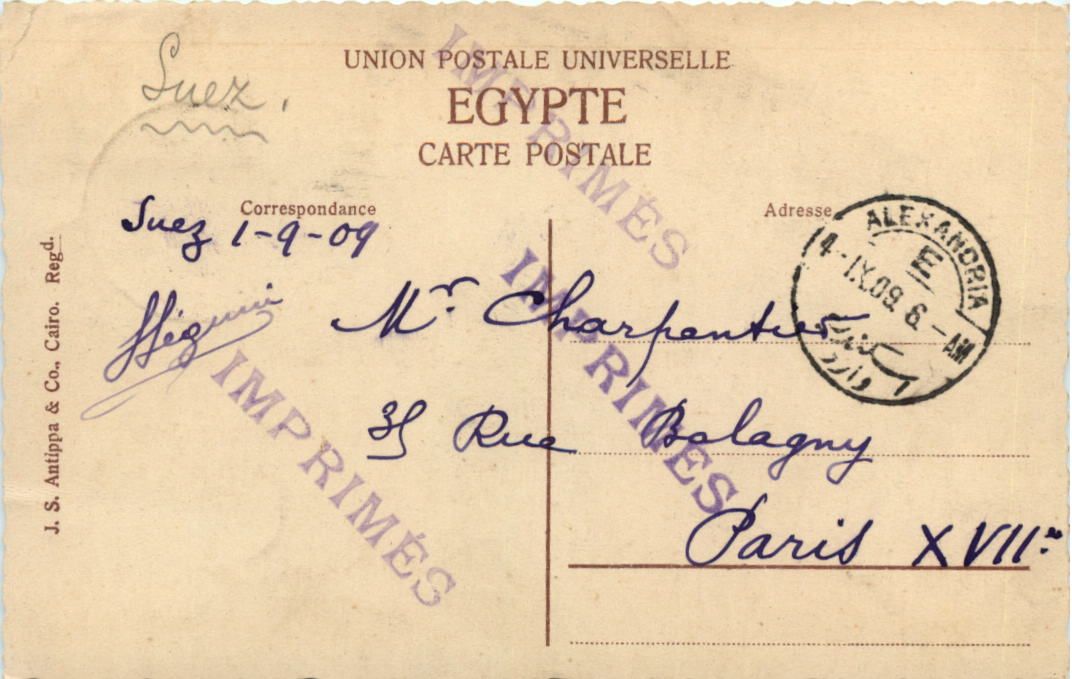 Suez.
UNION POSTALE UNIVERSELLE
EGYPTE
CARTE POSTALE
Correspondance
Adresse
Suez 1-9-09
Mr. Charpentier
35 Rue Balagny
Paris XVIIe
J. S. Antippa & Co., Cairo. Regd.
IMPRIMÉS
IMPRIMÉS
IMPRIMÉS
ALEXANDRIA
E
4-IX.09. 6.-AM